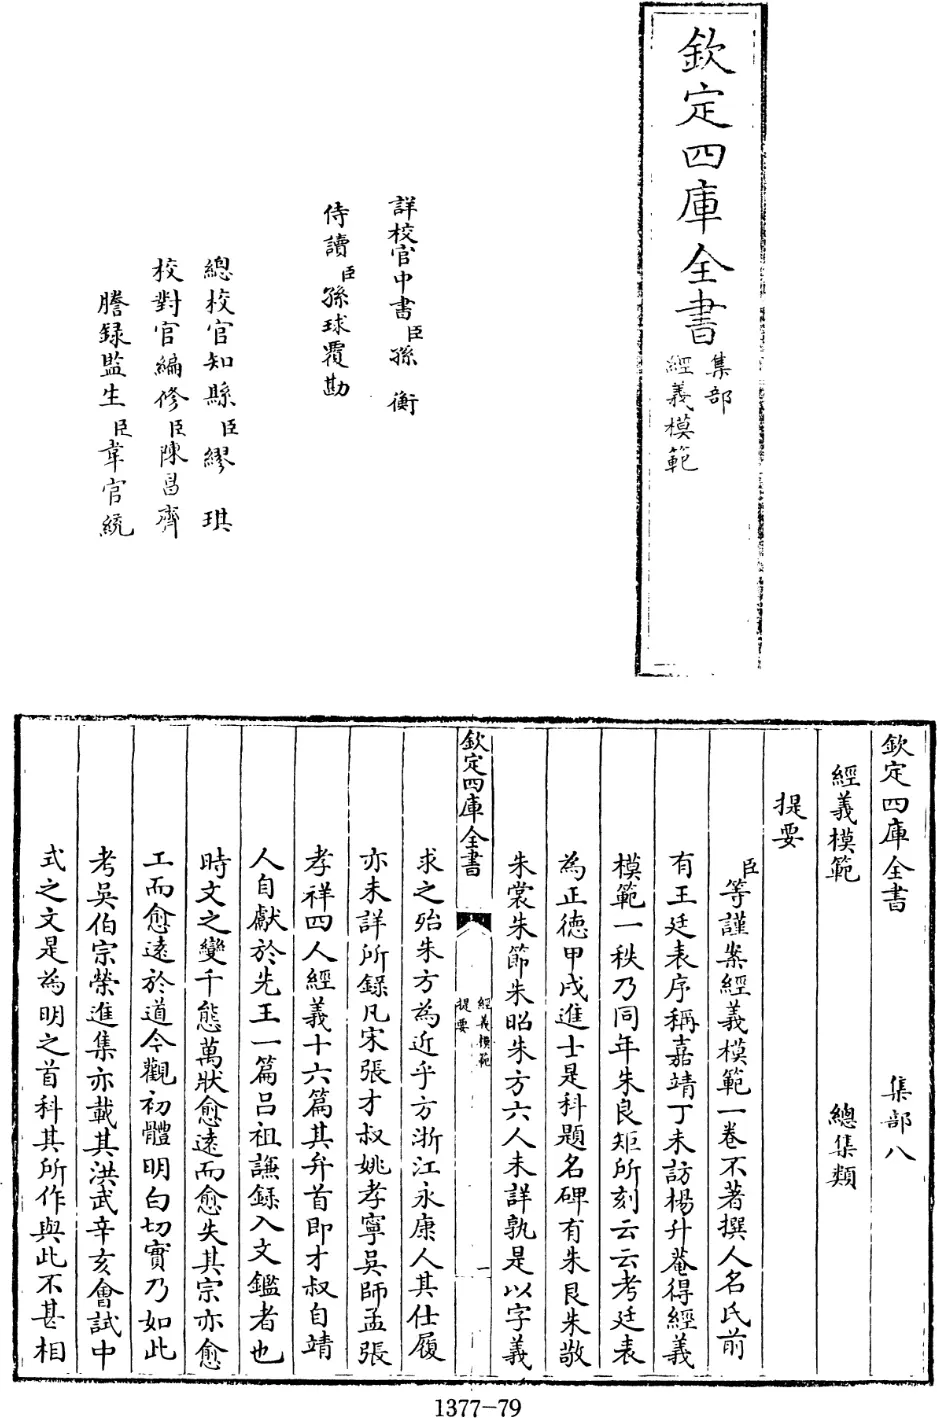 欽定四庫全書
集部
經義模範
詳校官中書臣孫衡
侍讀臣孫球覆勘
總校官知縣臣繆琪
校對官編修臣陳昌齊
謄錄監生臣韋官統
欽定四庫全書 集部八
經義模範 總集類
提要
臣等謹案經義模範一卷不著撰人名氏前
有王廷表序稱嘉靖丁未訪楊升菴得經義
模範一秩乃同年朱良矩所刻云云考廷表
為正德甲戌進士是科題名碑有朱良朱敬
朱裳朱節朱昭朱方六人未詳孰是以字義
欽定四庫全書
經義模範
提要
一
求之殆朱方為近乎方浙江永康人其仕履
亦未詳所錄凡宋張才叔姚孝寧吳師孟張
孝祥四人經義十六篇其弁首即才叔自靖
人自獻於先王一篇呂祖謙錄入文鑑者也
時文之變千態萬狀愈遠而愈失其宗亦愈
工而愈遠於道今觀初體明白切實乃如此
考吳伯宗榮進集亦載其洪武辛亥會試中
式之文是為明之首科其所作與此不甚相
1377-79